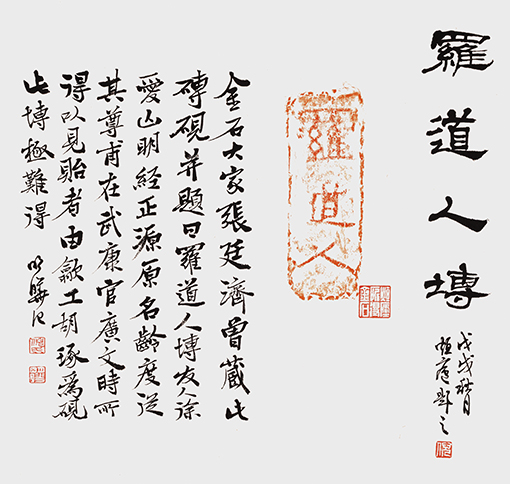 羅道人塼
戊戌
羅道人
金石大家張廷濟曾藏此
磚硯并題曰羅道人塼友人徐
愛山明經正源原名齡度從
其尊甫在武康官廣文時所
得以見貽者由歙工胡琢為硯
此塼極難得